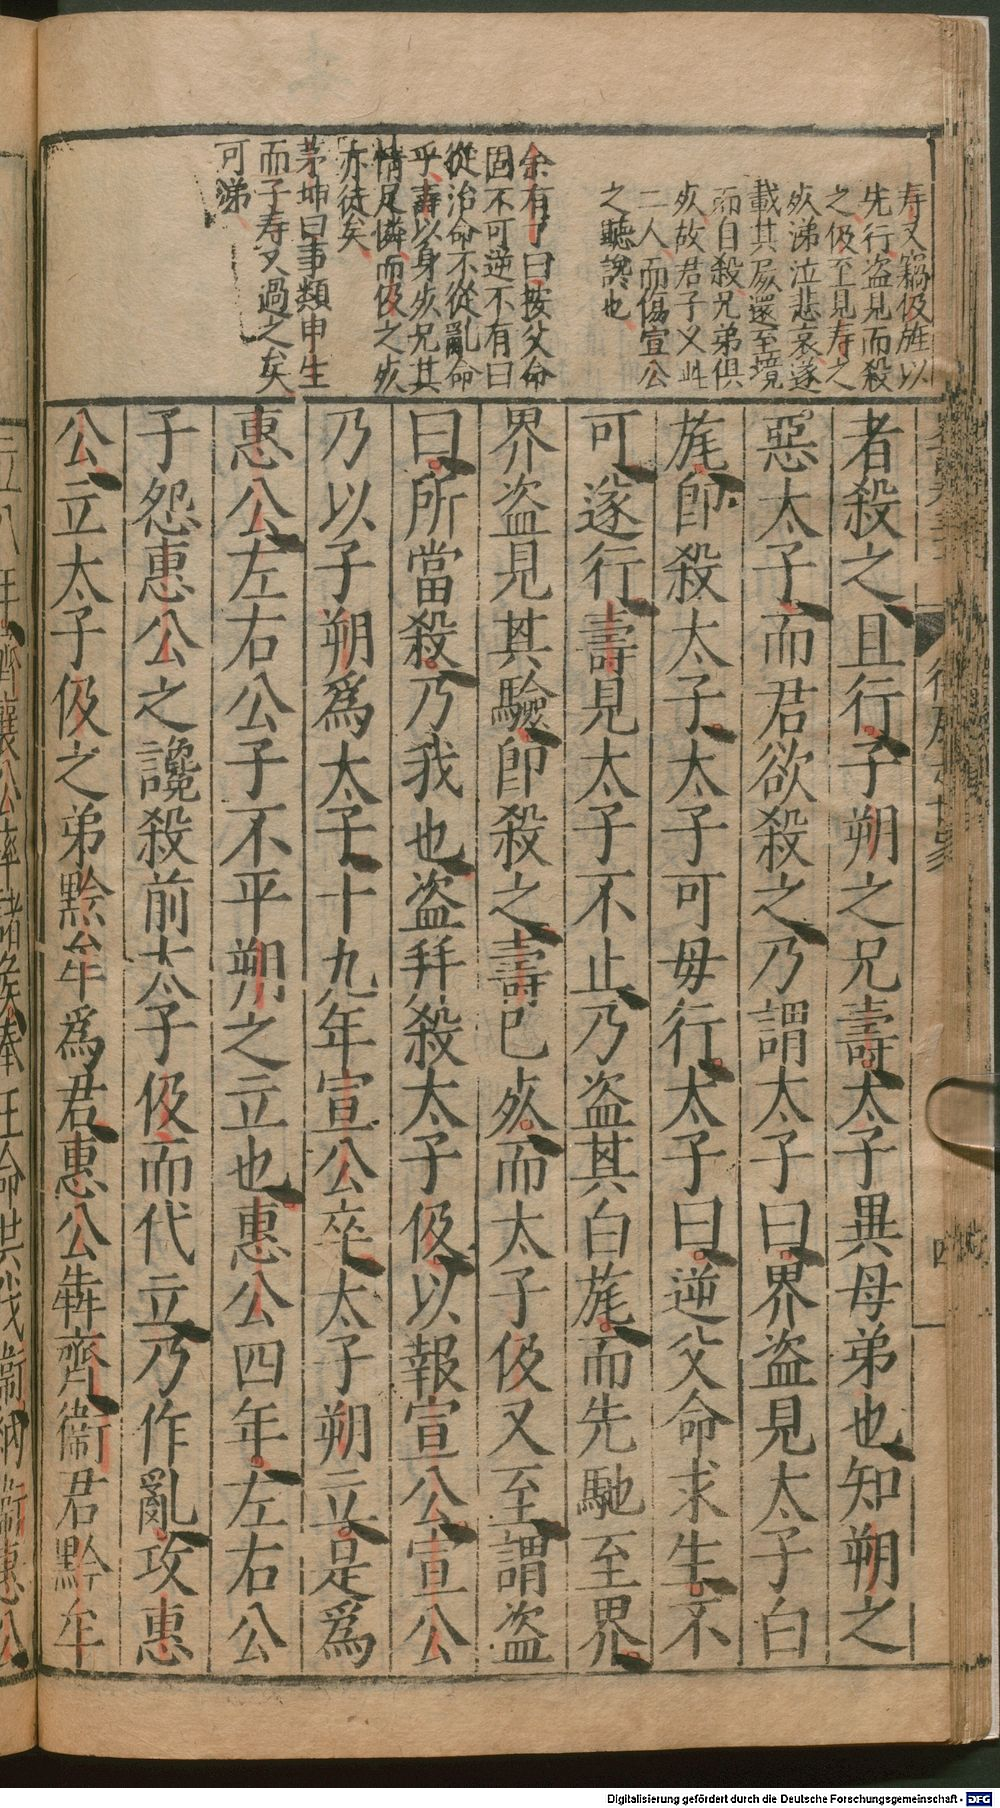 寿又竊伋旌以
先行盗見而殺
之伋至見寿之
死涕泣悲哀遂
載其屍還至境
而自殺兄弟俱
死故君子义此
二人而傷宣公
之聽讒也
余有丁曰按父命
固不可逆不有曰
從治命不從亂命
乎壽以身死兄其
情足憐而伋之死
亦徒矣
茅坤曰事類申生
而子寿又過之矣
可涕
者殺之且行子朔之兄壽太子異母弟也知朔之
惡太子而君欲殺之乃謂太子曰界盗見太子白
旄即殺太子太子可毋行太子曰逆父命求生不
可遂行壽見太子不止乃盗其白旄而先馳至界
界盗見其驗即殺之壽已死而太子伋又至謂盗
曰所當殺乃我也盗拜殺太子伋以報宣公宣公
乃以子朔爲太子十九年宣公卒太子朔立是爲
惠公左右公子不平朔之立也惠公四年左右公
子怨惠公之讒殺前太子伋而代立乃作亂攻惠
公立太子伋之弟黔牟爲君惠公犇齊衛君黔牟
立八年齊襄公率諸侯奉王命共伐衛納衛惠公
四
Digitalisierung gefördert durch die Deutsche Forschungsgemeinschaft - DFG